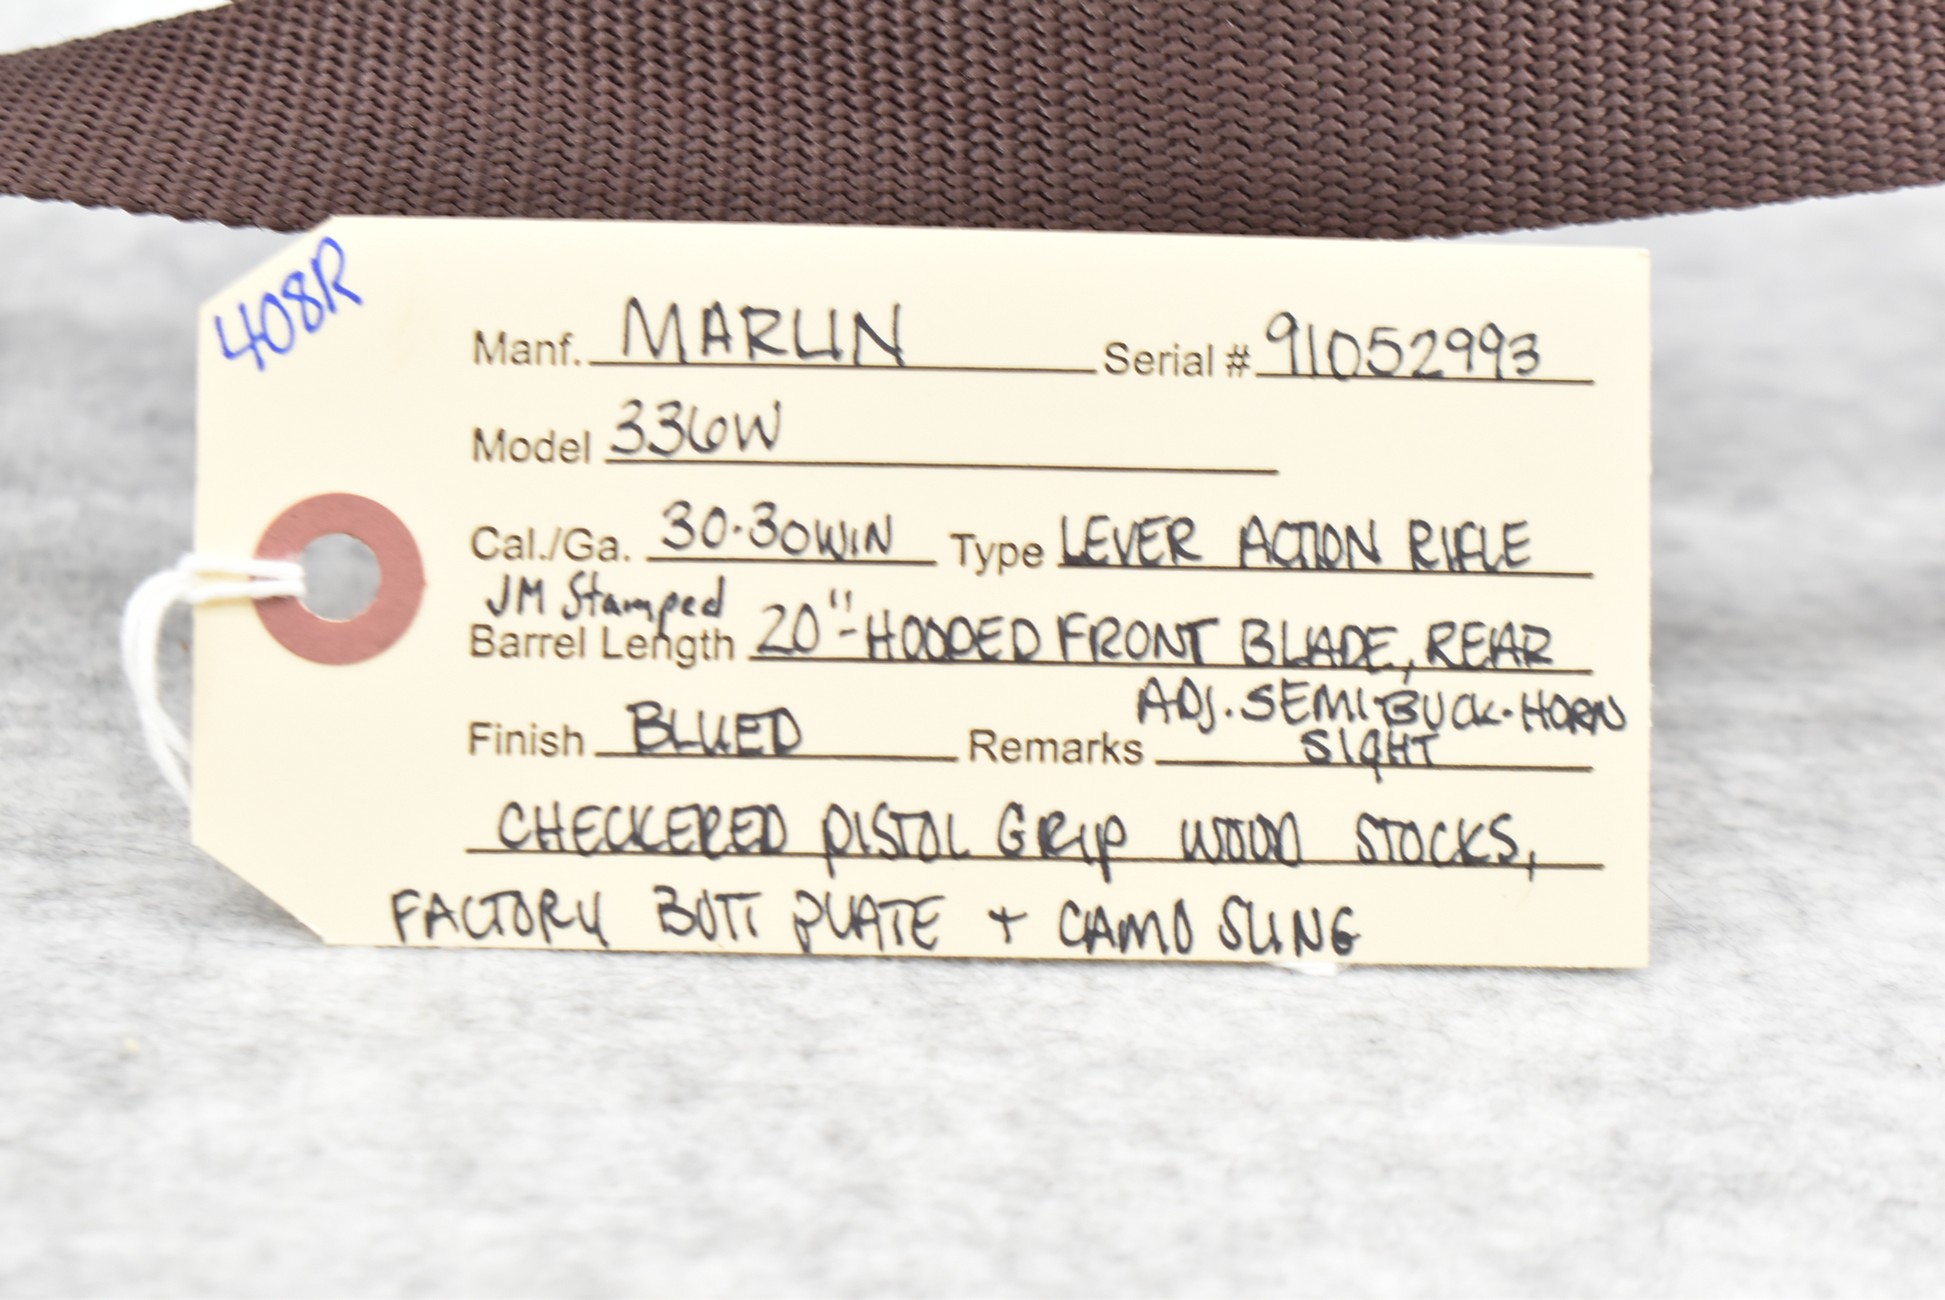 408R
Manf. MARLIN Serial # 91052993
Model 336W
Cal./Ga. 30-30 WIN Type LEVER ACTION RIFLE
JM Stamped
Barrel Length 20"-HOODED FRONT BLADE, REAR
ADJ. SEMI-BUCK-HORN
Finish BLUED Remarks SIGHT
CHECKERED PISTOL GRIP WOOD STOCKS,
FACTORY BUTT PLATE + CAMO SLING